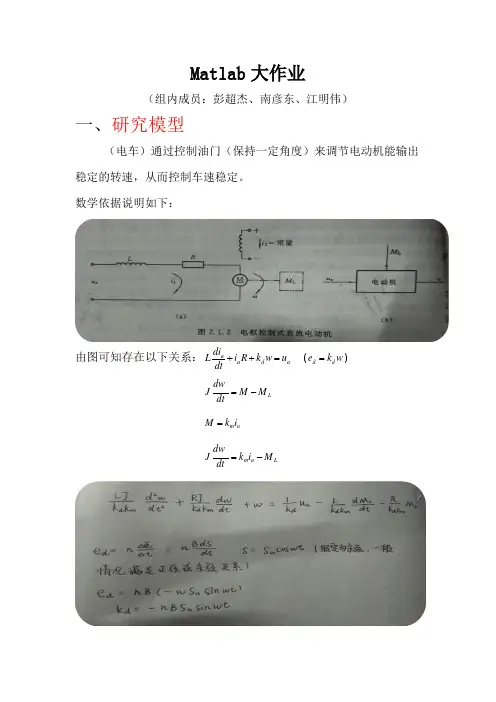 Matlab大作业
（组内成员：彭超杰、南彦东、江明伟）
一、研究模型
（电车）通过控制油门（保持一定角度）来调节电动机能输出
稳定的转速，从而控制车速稳定。
数学依据说明如下：
L R i₂=常量 M M_L
(a)
M_L 电动机
(b)
图 2.1.2 电枢控制式直流电动机
由图可知存在以下关系：L di_a/dt + i_a R + k_d w = u_a (e_d = k_d w)
J dw/dt = M − M_L
M = k_m i_a
J dw/dt = k_m i_a − M_L
LJ/(k_d k_m) d²w/dt² + RJ/(k_d k_m) dw/dt + w = 1/k_d u_a − L/(k_d k_m) dM_L/dt − R/(k_d k_m) M_L
e_d = n dΦ/dt = n BdS/dt S = S_a coswt (假定为余弦、一般
情况满足正弦或余弦关系)
e_d = nB(−w S_a sinwt)
k_d = −nB S_a sinwt